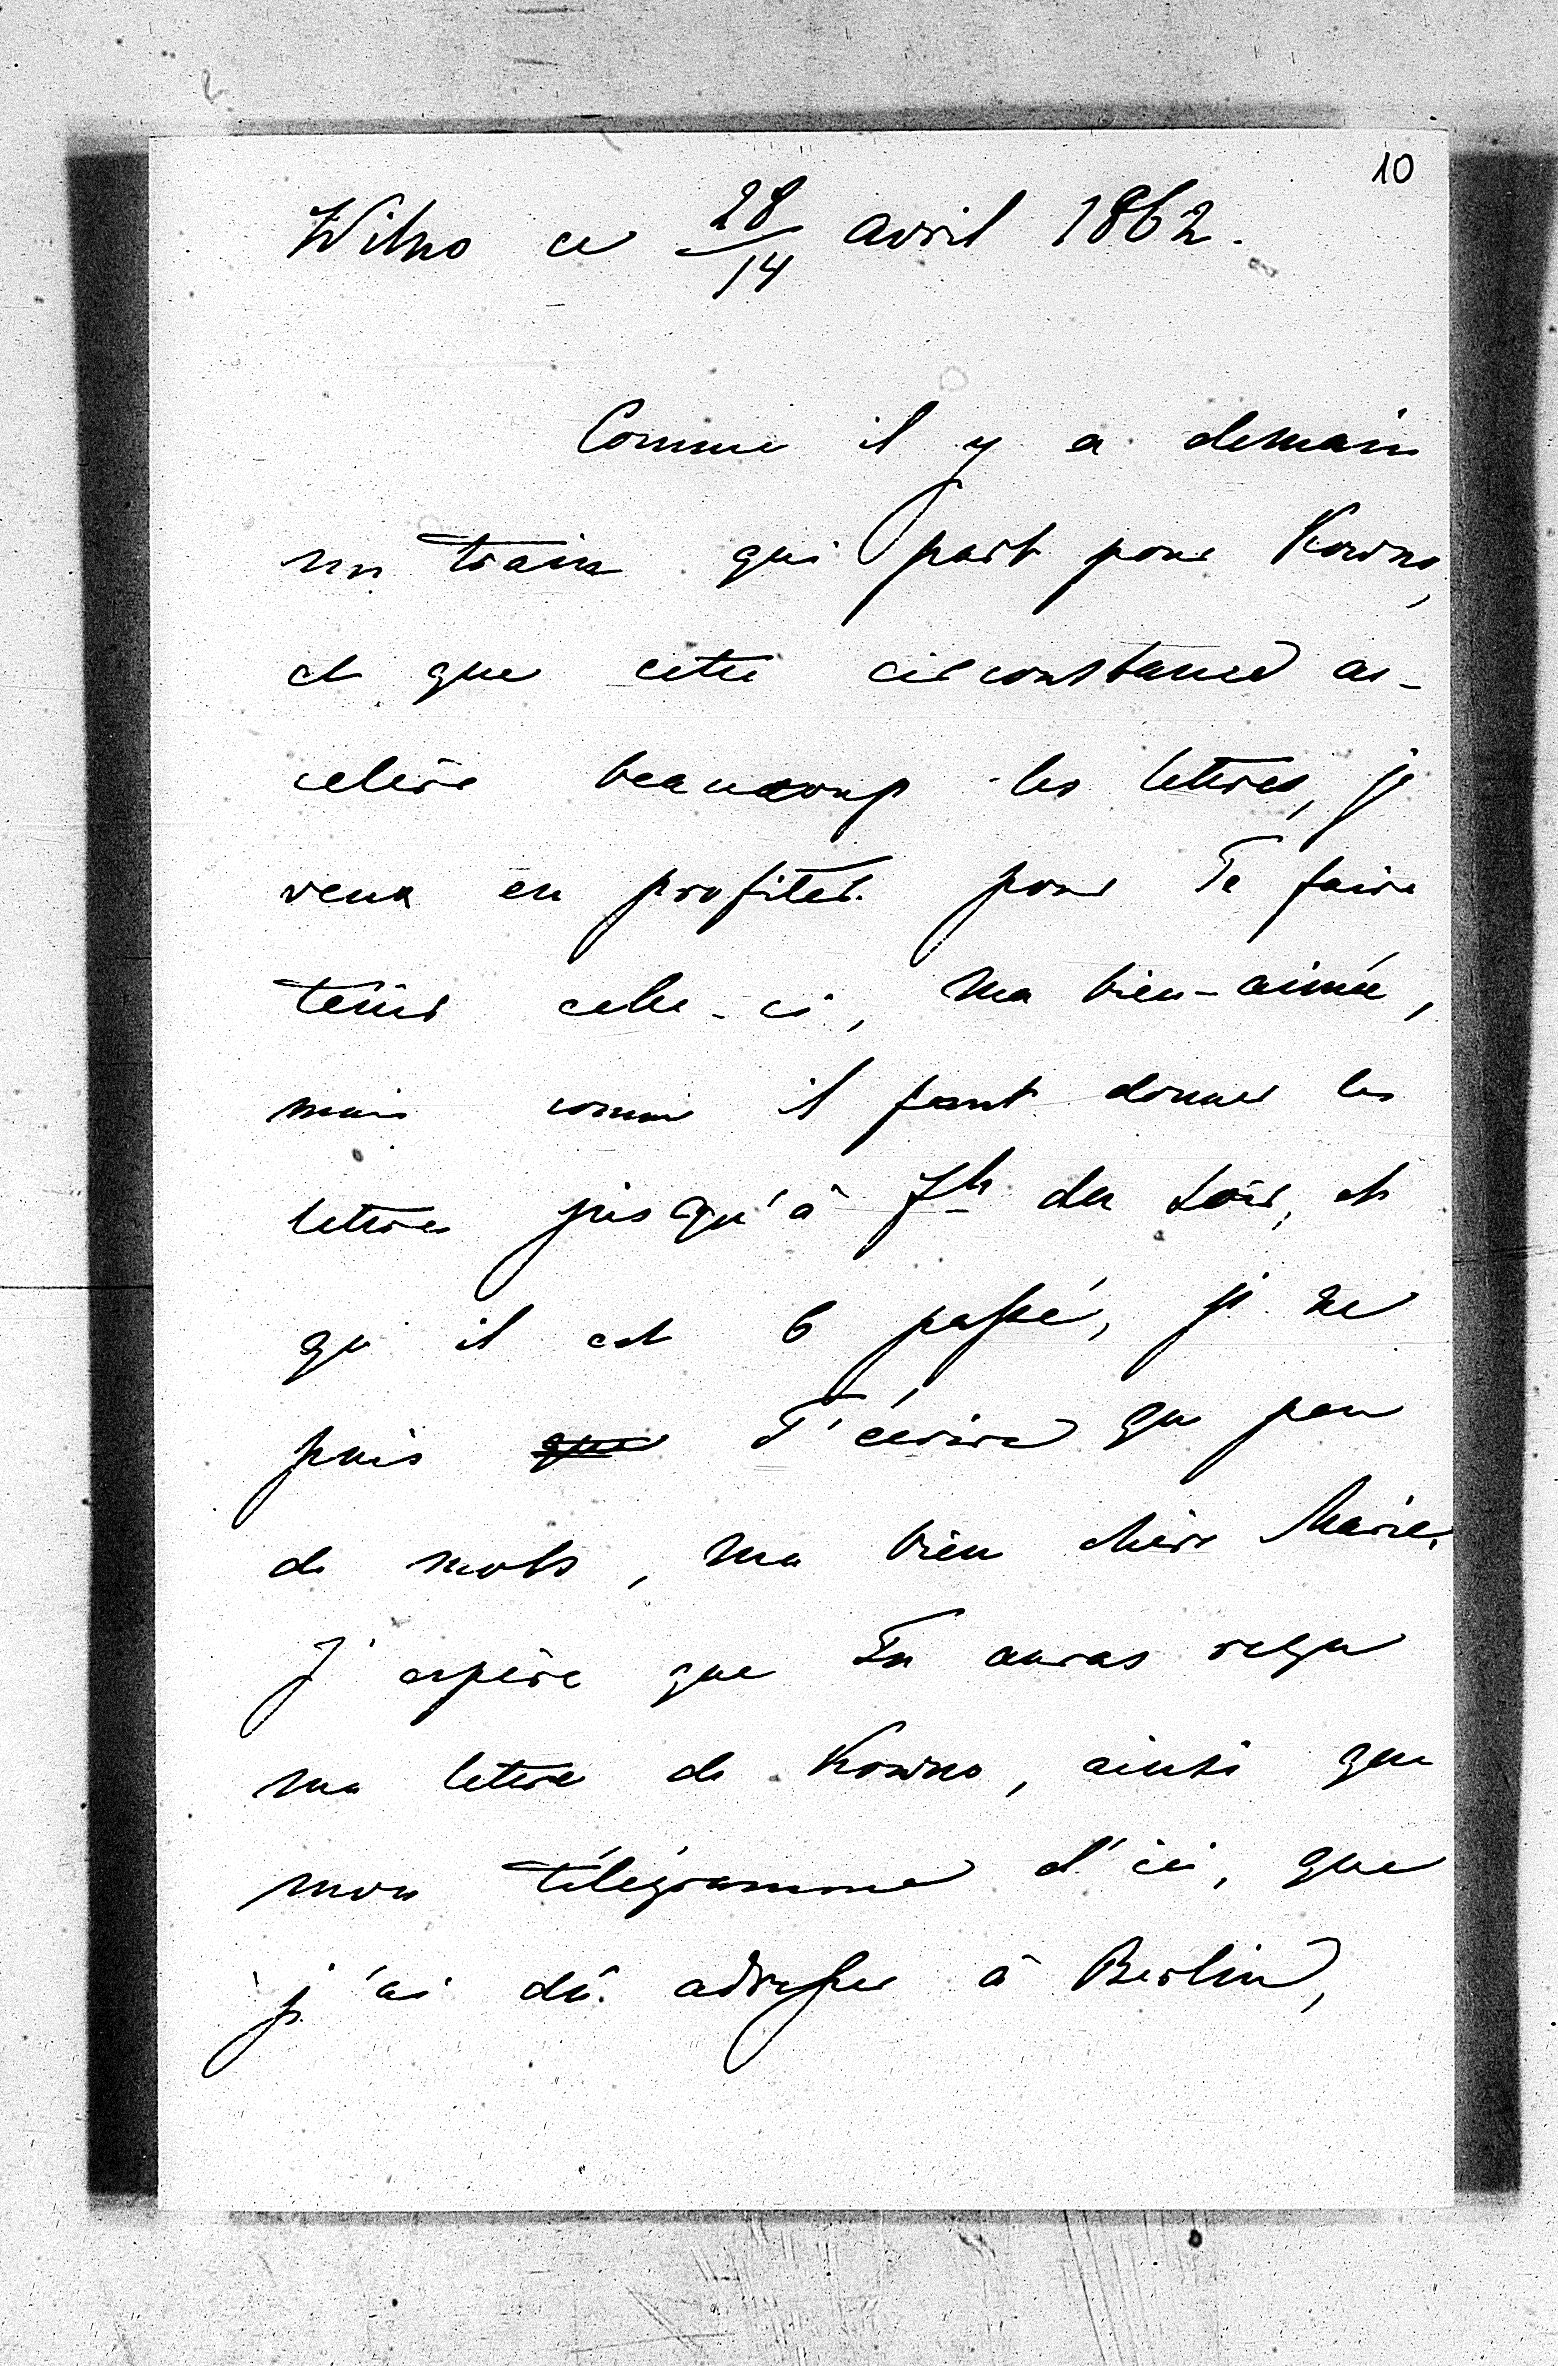 10
Wilno ce 28/14 avril 1862.
Comme il y a demain
un train qui part pour Kowno,
et que cette circonstance ac-
celère beaucoup les lettres, je
veux en profiter pour Te faire
tenir celle-ci, ma bien-aimée,
mais comme il faut donner les
lettres jusqu'à 7h du soir, et
qu'il est 6 passé, je ne
puis que T'écrire que peu
de mots, ma bien chère Marie.
J'espère que Tu auras reçu
ma lettre de Kowno, ainsi que
mon télégramme d'ici, que
j'ai dû adresser à Berlin,